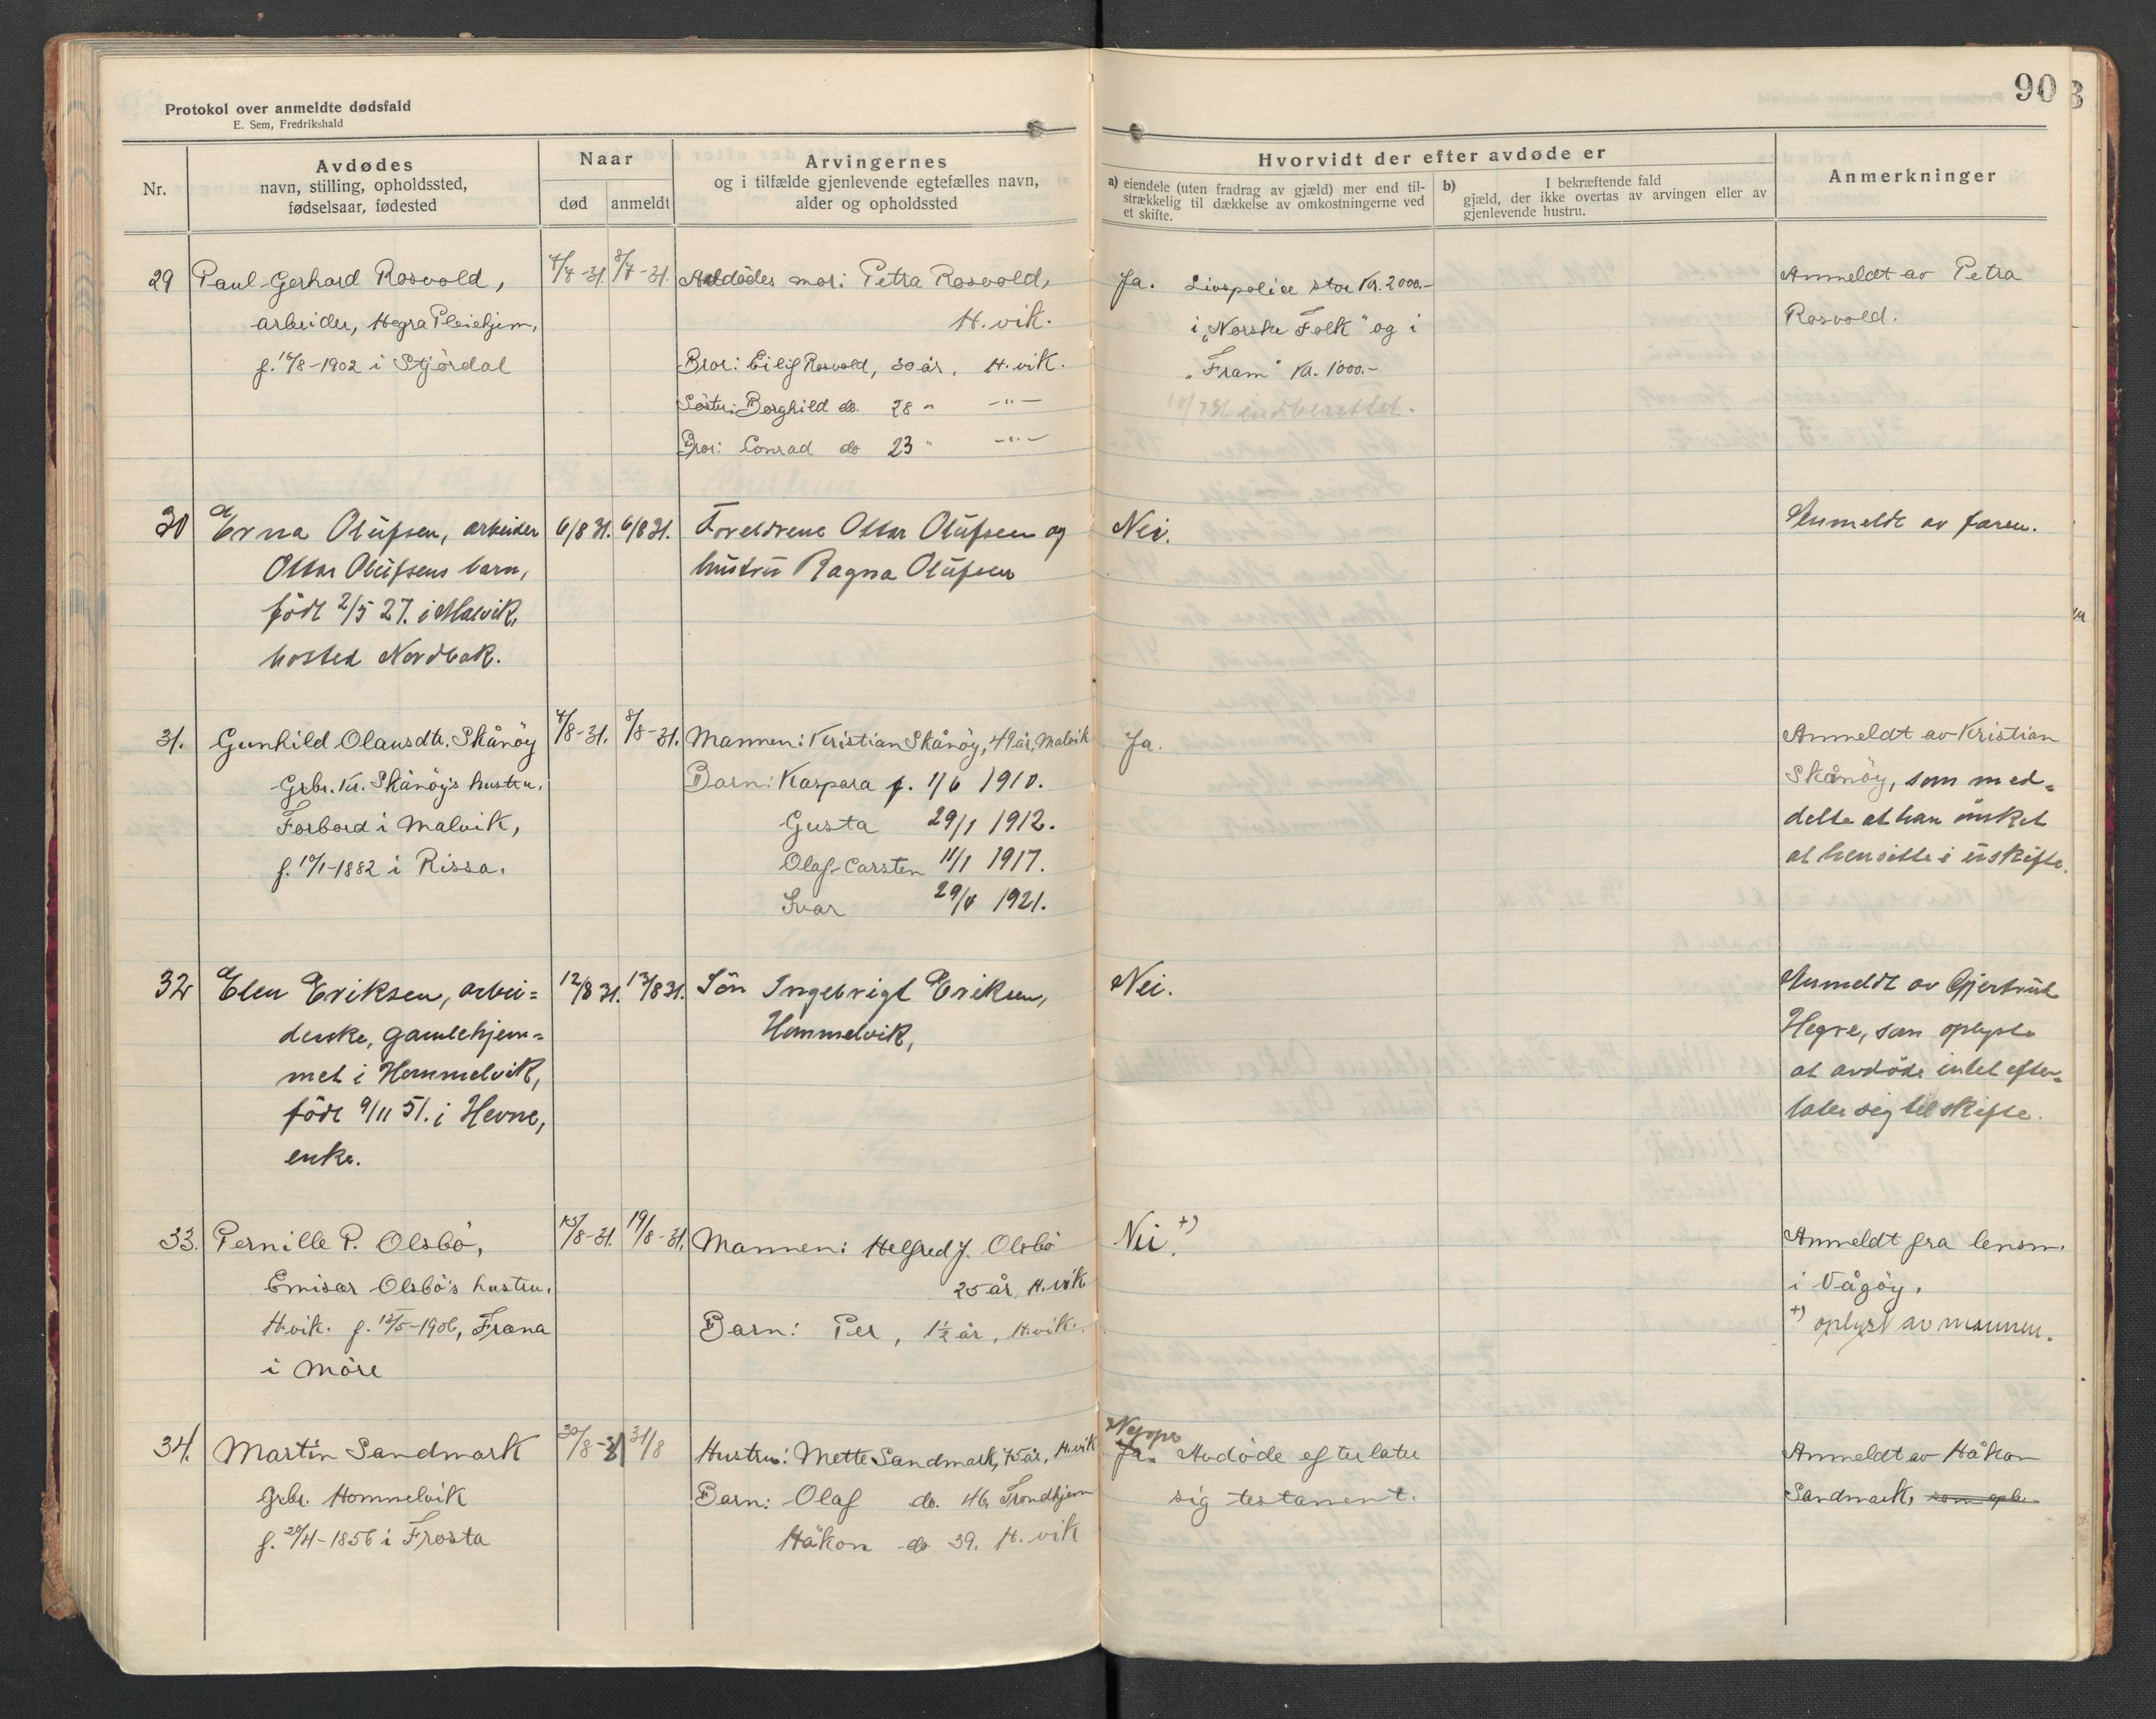 90
Protokol over anmeldte dødsfald
E. Sem, Fredrikshald
Nr.
Avdødes
navn, stilling, opholdssted,
fødselsaar, fødested
Naar
død
anmeldt
Arvingernes
og i tilfælde gjenlevende egtefælles navn,
alder og opholdssted
Hvorvidt der efter avdøde er
a) eiendele (uten fradrag av gjæld) mer end til-
strækkelig til dækkelse av omkostningerne ved
et skifte.
b) I bekræftende fald
gjæld, der ikke overtas av arvingen eller av
gjenlevende hustru.
Anmerkninger
29 Paul-Gerhard Rosvold,
arbeider, Hegra Pleiehjem,
f. 16/8-1902 i Stjördal
7/7-31. 8/7-31.
Avdødes mor: Petra Rosvold,
H.vik.
Bror: Eilif Rosvold, 30 år, H.vik.
Søster: Borghild do. 28 " -"-
Bror: Conrad do 23 " -"-
Ja. Livspolise stor Kr. 2000.-
i „Norske Folk" og i
„Fram" Kr. 1000.-
10/7 31. indberettet.
Anmeldt av Petra
Rosvold.
30 Erna Olufsen, arbeider
Ottar Olufsens barn,
född 2/5 27. i Malvik,
bosted Nordbak.
6/8 31. 6/8 31.
Foreldrene Ottar Olufsen og
hustru Ragna Olufsen
Nei.
Anmeldt av faren.
31. Gunhild Olausdtr. Skånöy
Grbr. Kr. Skånöy's hustru,
Forbord i Malvik,
f. 19/1-1882 i Rissa.
4/8-31. 8/8-31.
Mannen: Kristian Skånöy, 49 år, Malvik
Barn: Kaspara f. 1/6 1910.
Gusta 29/1 1912.
Olaf-Carsten 11/1 1917.
Ivar 29/8 1921.
Ja.
Anmeldt av Kristian
Skånöy, som med-
delte at han önsket
at hensitte i uskifte.
32 Elen Eriksen, arbei-
derske, gamlehjem-
met i Hommelvik,
född 9/11 51. i Hevne,
enke.
12/8 31. 13/8 31.
Sön Ingebrigt Eriksen,
Hommelvik,
Nei.
Anmeldt av Gjertrud
Hegre, som oplyste
at avdöde intet efter-
later sig til skifte.
33. Pernille P. Olsbö,
Emisær Olsbö's hustru,
H.vik. f. 15/5-1906, Fræna
i Möre
15/8-31. 19/8-31.
Mannen: Helfred J. Olsbö
25 år, H.vik
Barn: Per, 1½ år, H.vik.
Nei. +)
Anmeldt fra lensm.
i Vågöy.
+) oplyst av mannen.
34. Martin Sandmark
Grbr. Hommelvik
f. 20/4-1856 i Frosta
30/8-31 31/8
Hustru: Mette Sandmark, 75 år, H.vik
Barn: Olaf do. 46, Trondhjem
Håkon do 39. H.vik
Neppe
Ja. Avdöde efterlater
sig testament.
Anmeldt av Håkon
Sandmark, som oply